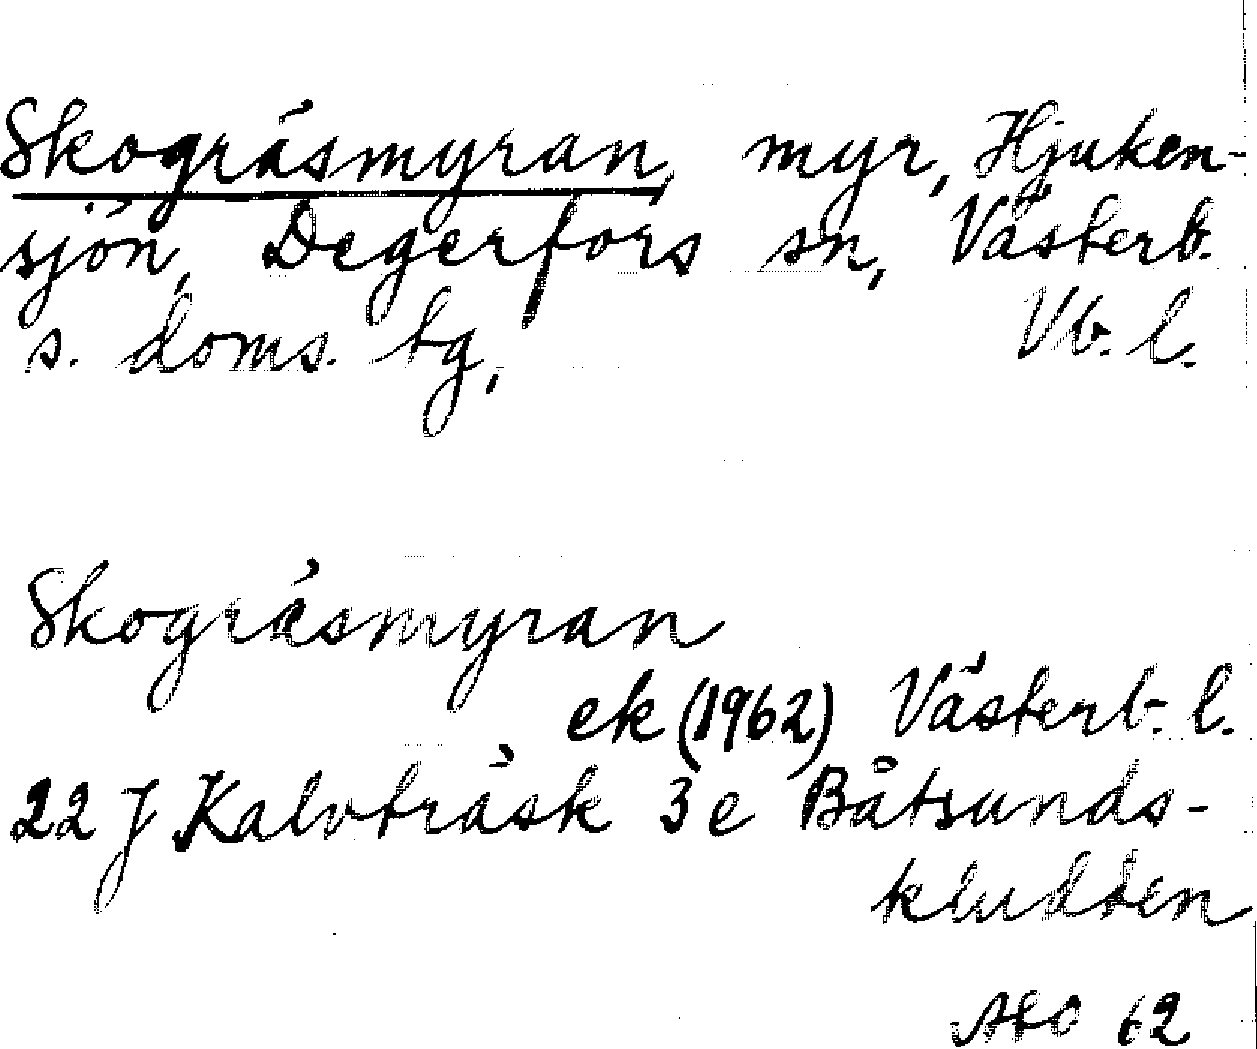 Skogräsmyran, myr, Hjuken-
sjön, Degerfors sn, Västerb.
s. doms. tg, Vb. l.
Skogräsmyran
ek (1962) Västerb. l.
22 J Kalvträsk 3e Båtsunds-
kludden
62